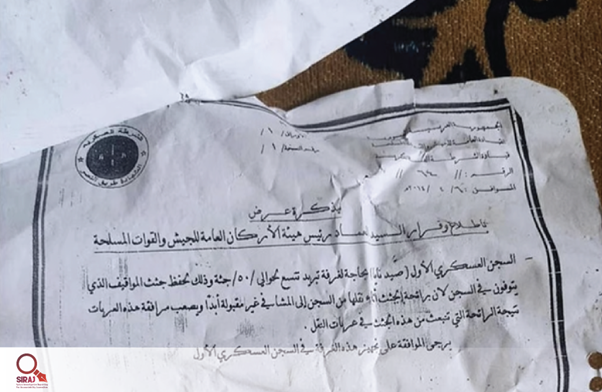 الشرطة العسكرية
الجمهورية العربية
القيادة العامة للجيش والقوات المسلحة
الرقم: //
الموافق: / ٢٠١٤/٦ م
عدد الأوراق / ١ /
رقم النسخة / ١ /
مذكرة عرض
باطلاع وقرار السيد العماد رئيس هيئة الأركان العامة للجيش والقوات المسلحة
- السجن العسكري الأول (صيدنايا) بحاجة لغرفة تبريد تتسع لحوالي /٥٠/ جثة وذلك لحفظ جثث المواقيف الذي
يتوفون في السجن لأن رائحة الجثث أثناء نقلها من السجن إلى المشافي غير مقبولة أبداً ويصعب مرافقة هذه العربات
نتيجة الرائحة التي تنبعث من هذه الجثث في عربات النقل.
يرجى الموافقة على تجهيز هذه الغرفة في السجن العسكري الأول
SIRAJ